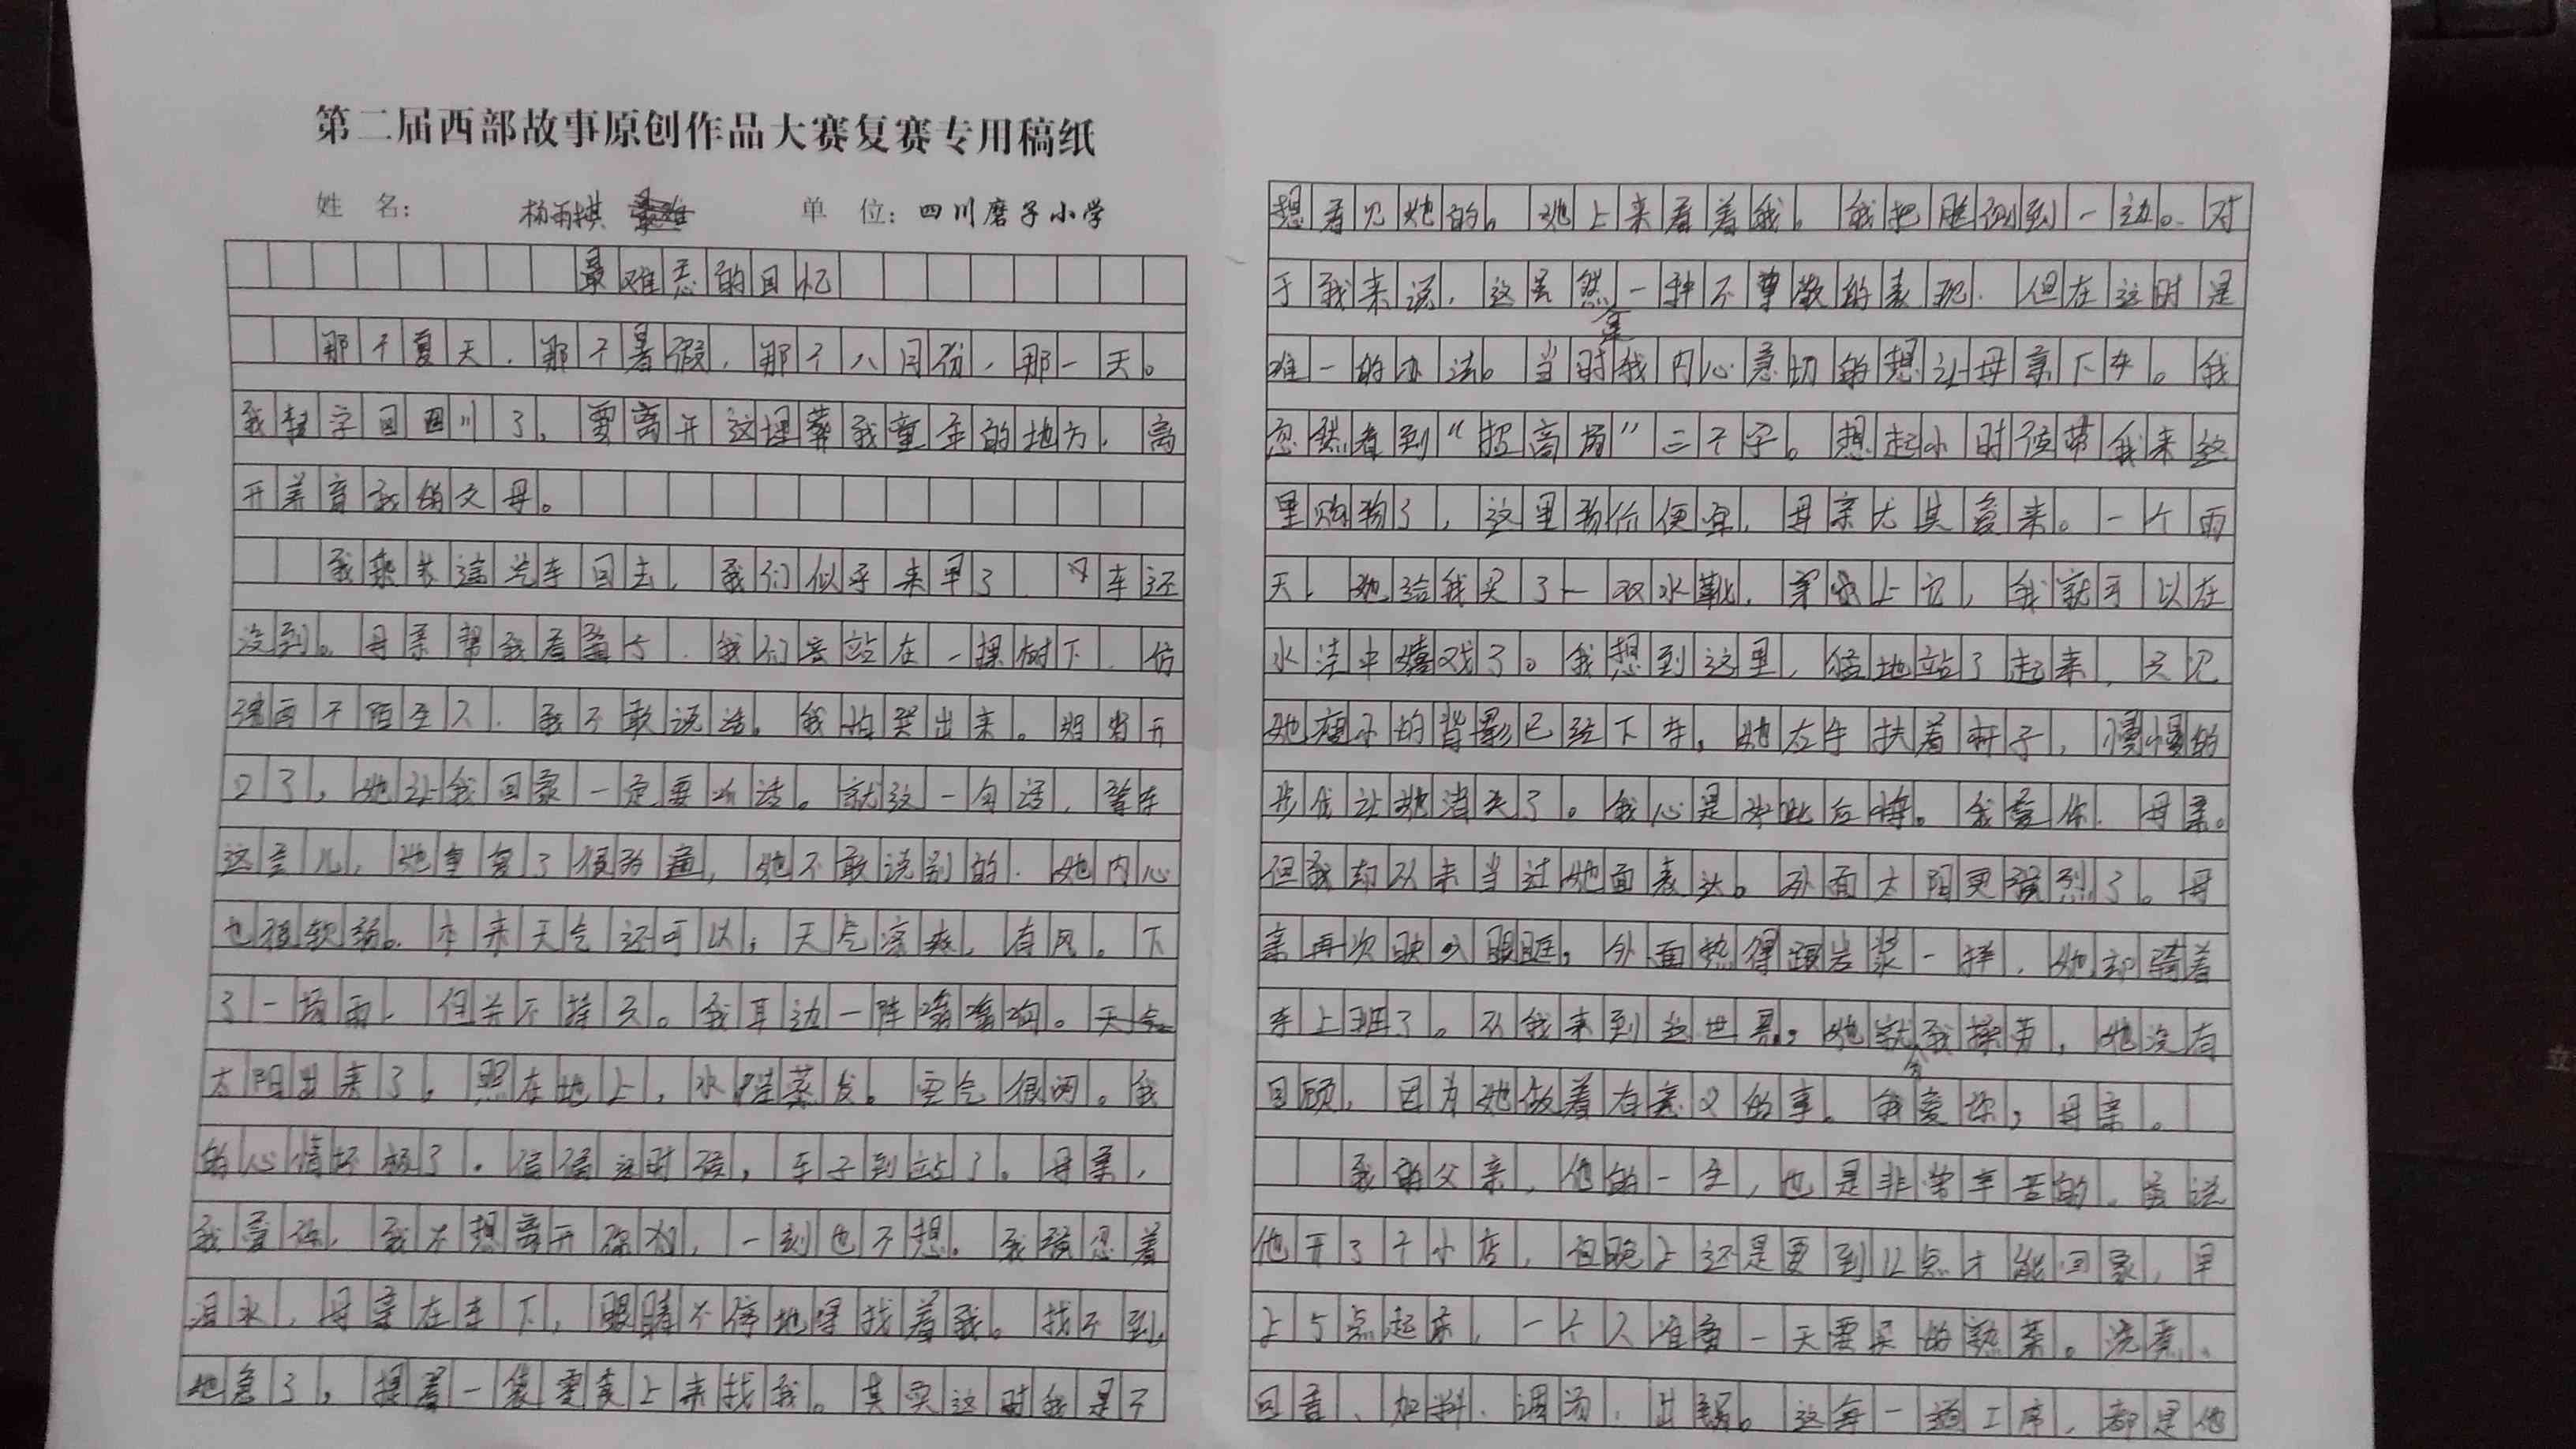 第二届西部故事原创作品大赛复赛专用稿纸
姓 名: 杨雨棋 单 位: 四川磨子小学
最难忘的回忆
那个夏天,那个暑假,那个八月份,那一天。
我转学回四川了,要离开这埋葬我童年的地方,离
开养育我的父母。
我乘长途汽车回去,我们似乎来早了 车还
没到。母亲帮我看 我们 站在一棵树下 仿
两个陌生人 我不敢说话。我怕哭出来。 开
口了,她让我回家一定要听话。就这一句话,等车
这会儿,她重复了很多遍,她不敢说别的.她内心
也很软弱。本来天气还可以,天气凉爽,有风。下
了一场雨,但并不持久。我耳边一阵嗡嗡响。
太阳出来了,照在地上,水 蒸发。空气很闷。我
的心情坏极了。偏偏这时候,车子到站了。母亲,
我爱你,我不想离开你 ,一刻也不想。我强忍着
泪水,母亲在车下,眼睛不停地寻找着我。找不到,
她急了,提着一袋零食上来找我。其实这时我是不
想看见她的。她上来看着我。我把脸侧到一边。对
于我来说,这虽然一种不尊敬的表现.但在这时是
唯一的办法。当时我内心急切的想让母亲下车。我
忽然看到“招商场”三个字。想起小时候带我来这
里购物了,这里物价便宜,母亲尤其爱来。一个雨
天,她给我买了一双水靴,穿上它,我就可以在
水洼中嬉戏了。我想到这里,猛地站了起来,只见
她瘦小的背影已经下车,她左手扶着杆子,慢慢的
步伐让她消失了。我心是如此后悔。我爱你.母亲。
但我却从未当过她面表达。外面太阳更强烈了。母
亲再次映入眼眶,外面热得跟岩浆一样,她却骑着
车上班了。从我来到这世界,她就为我操劳,她没有
回顾,因为她做着有意义的事。我爱你,母亲。
我的父亲,他的一生,也是非常辛苦的,虽说
他开了个小店,但晚上还是要到12点才能回家,早
上5点起床,一个人准备一天要买的熟菜。洗煮、
回香、加料、调汤、出锅。这每一道工序,都是他